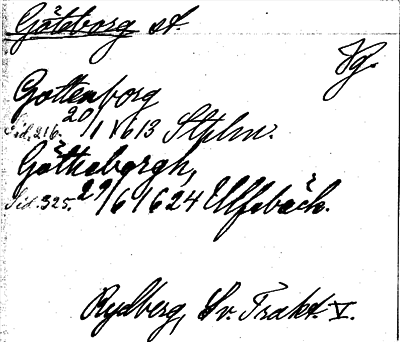 Göteborg st.
Hg.
Gottenborg
Sid. 216. 20/1 1613 Sthlm.
Götheborgh,
Sid. 325. 29/6 1624 Ulfsbäck.
Rydberg, Sv. Trakt. V.